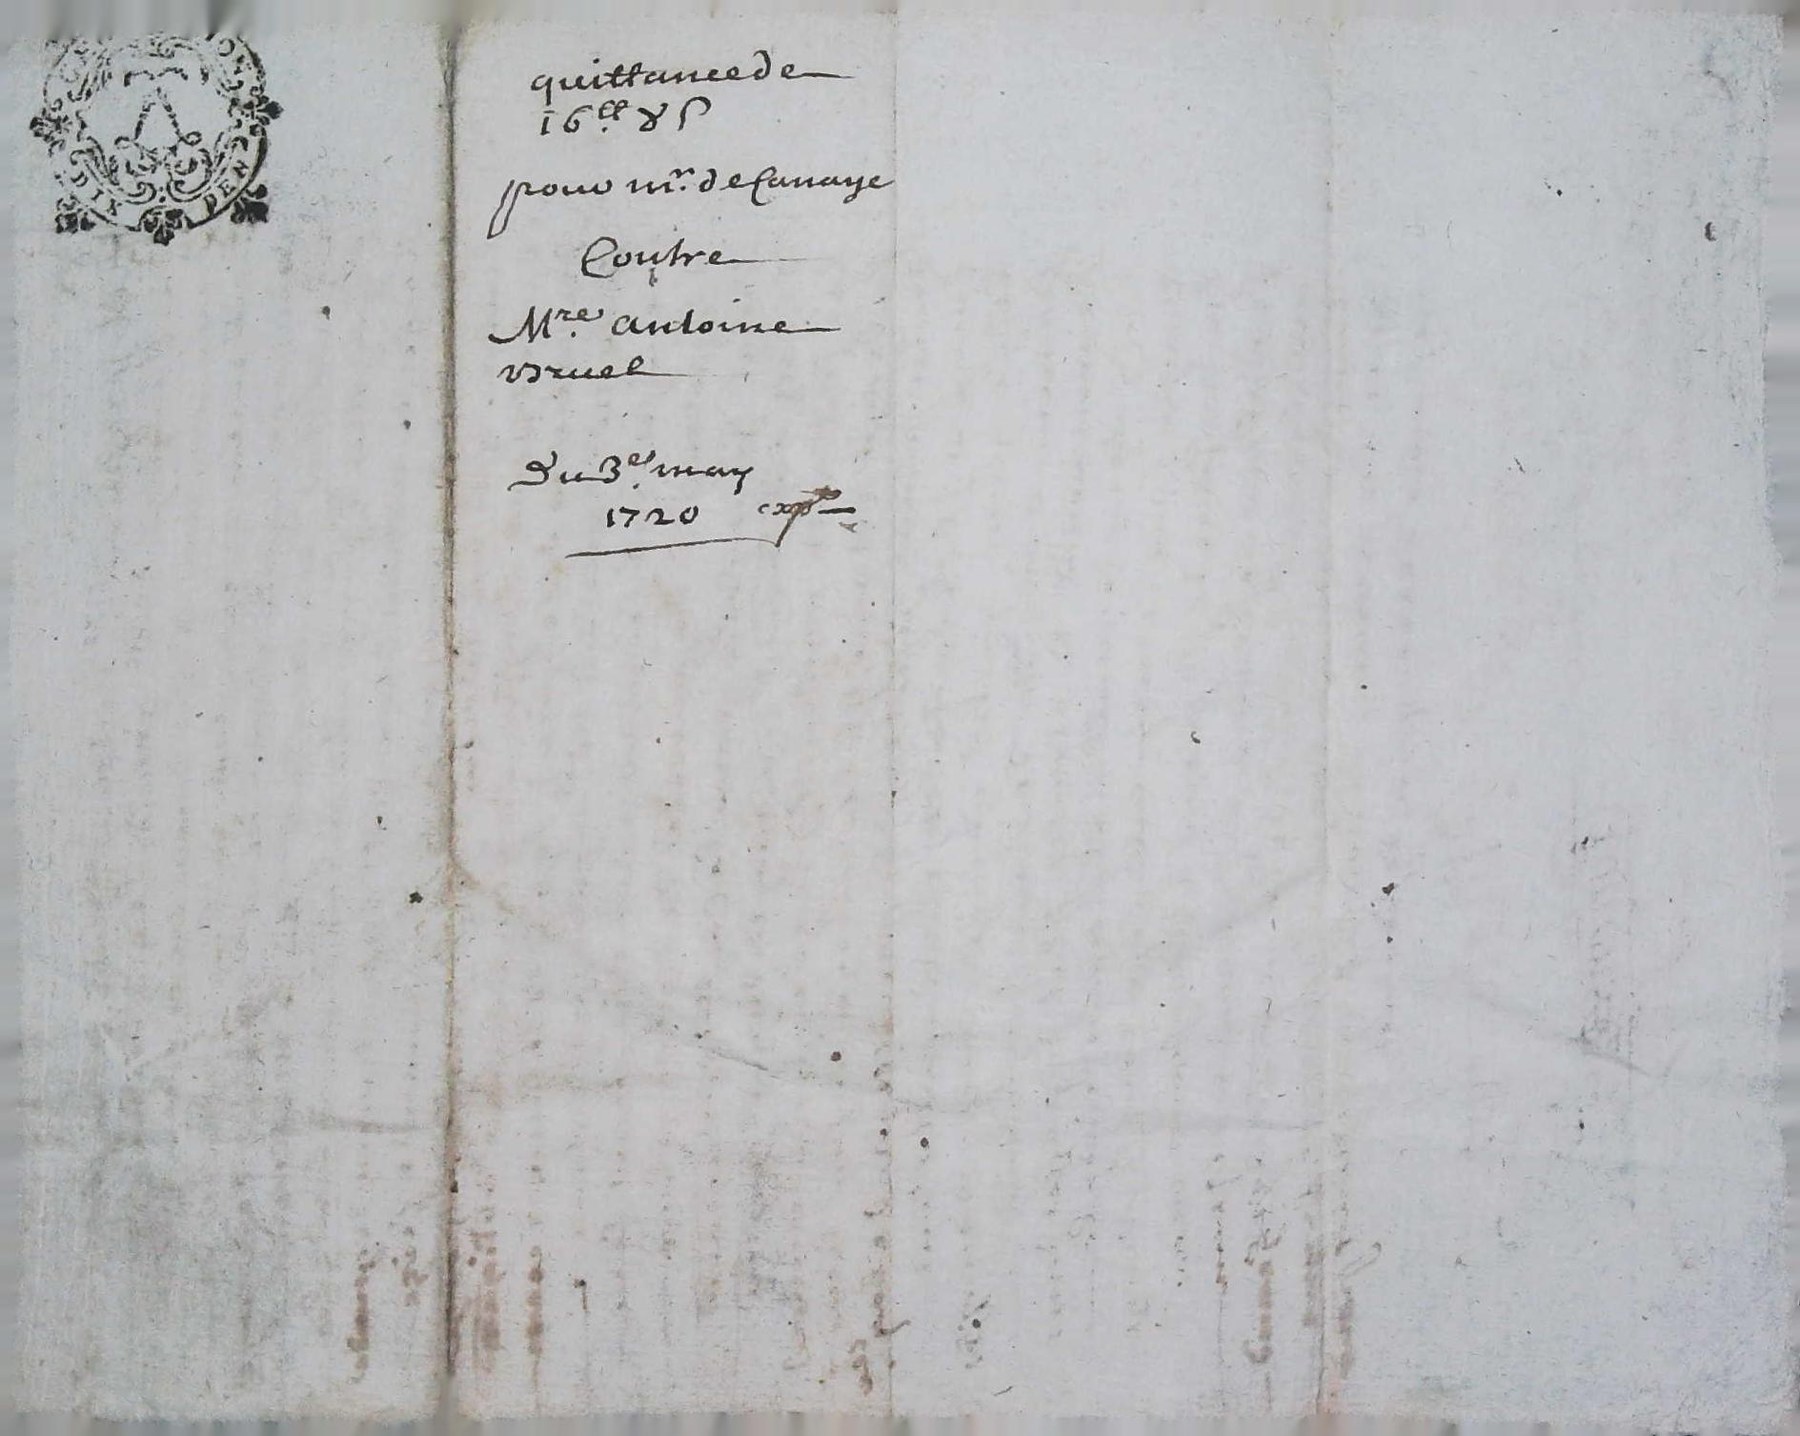 SIX DEN
quittance de
16ᵗᵗ 8 s
pour mr. de Canaye
Contre
Mre. antoine
bruel
Du 3e. may
1720 exp